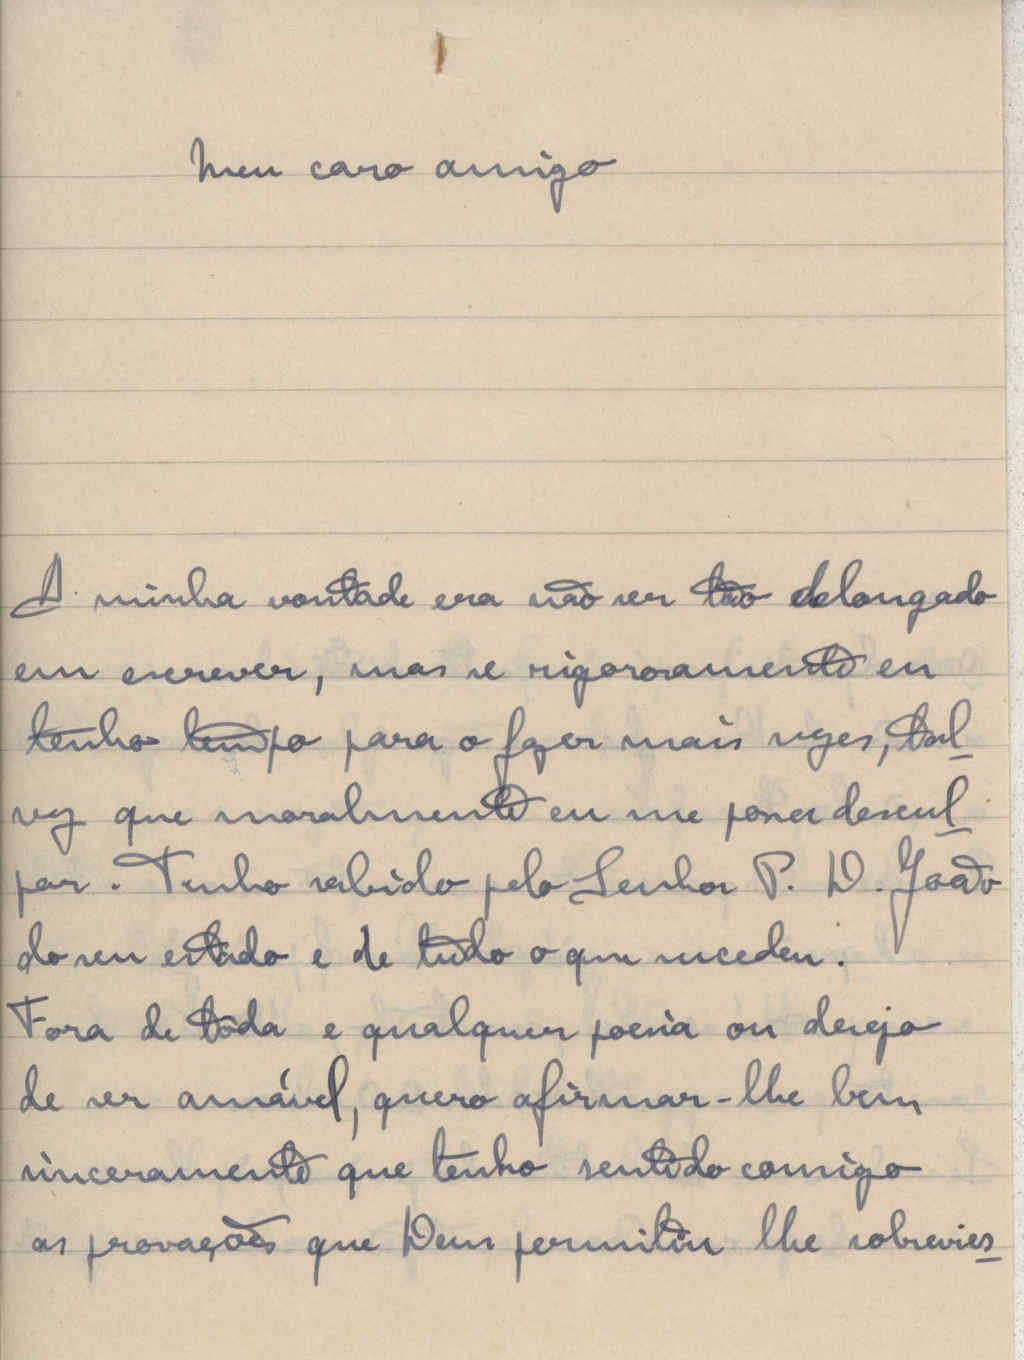 Meu caro amigo
A minha vontade era não ser tão delongado
em escrever, mas se rigorosamente eu
tenho tempo para o fazer mais vezes, tal_
vez que moralmente eu me possa descul_
par. Tenho sabido pelo Senhor P. D. João
do seu estado e de tudo o que sucedeu.
Fora de tôda e qualquer poesia ou desejo
de ser amável, quero afirmar-lhe bem
sinceramente que tenho sentido comigo
as provações que Deus permitiu lhe sobrevies_